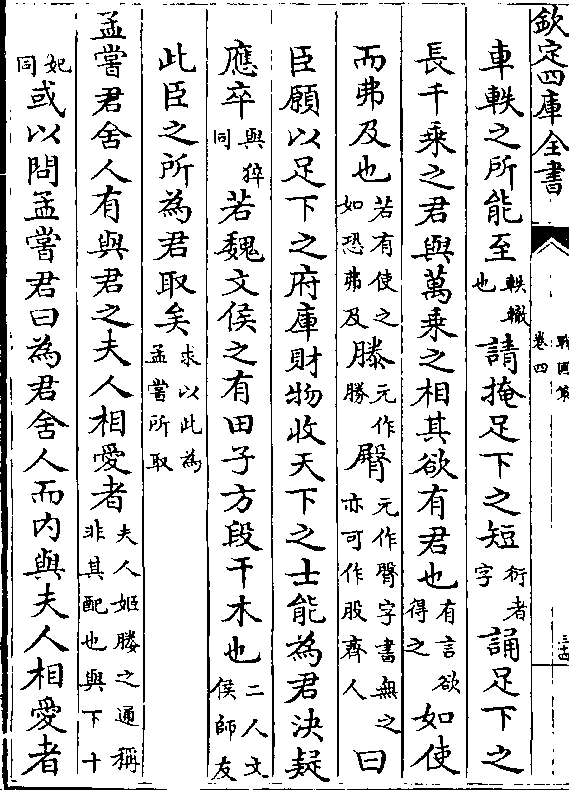 欽定四庫全書
戰國策
卷四
車軼之所能至軼轍也請掩足下之短衍者字誦足下之
長千乘之君與萬乘之相其欲有君也有言欲得之如使
而弗及也若有使之如恐弗及滕元作勝臀元作臋字書無之亦可作股齊人曰
臣願以足下之府庫財物收天下之士能為君決疑
應卒與猝同若魏文侯之有田子方段干木也二人文侯師友
此臣之所為君取矣求以此為孟嘗所取
孟嘗君舍人有與君之夫人相愛者夫人姬媵之通稱非其配也與下十
妃同或以問孟嘗君曰為君舍人而内與夫人相愛者